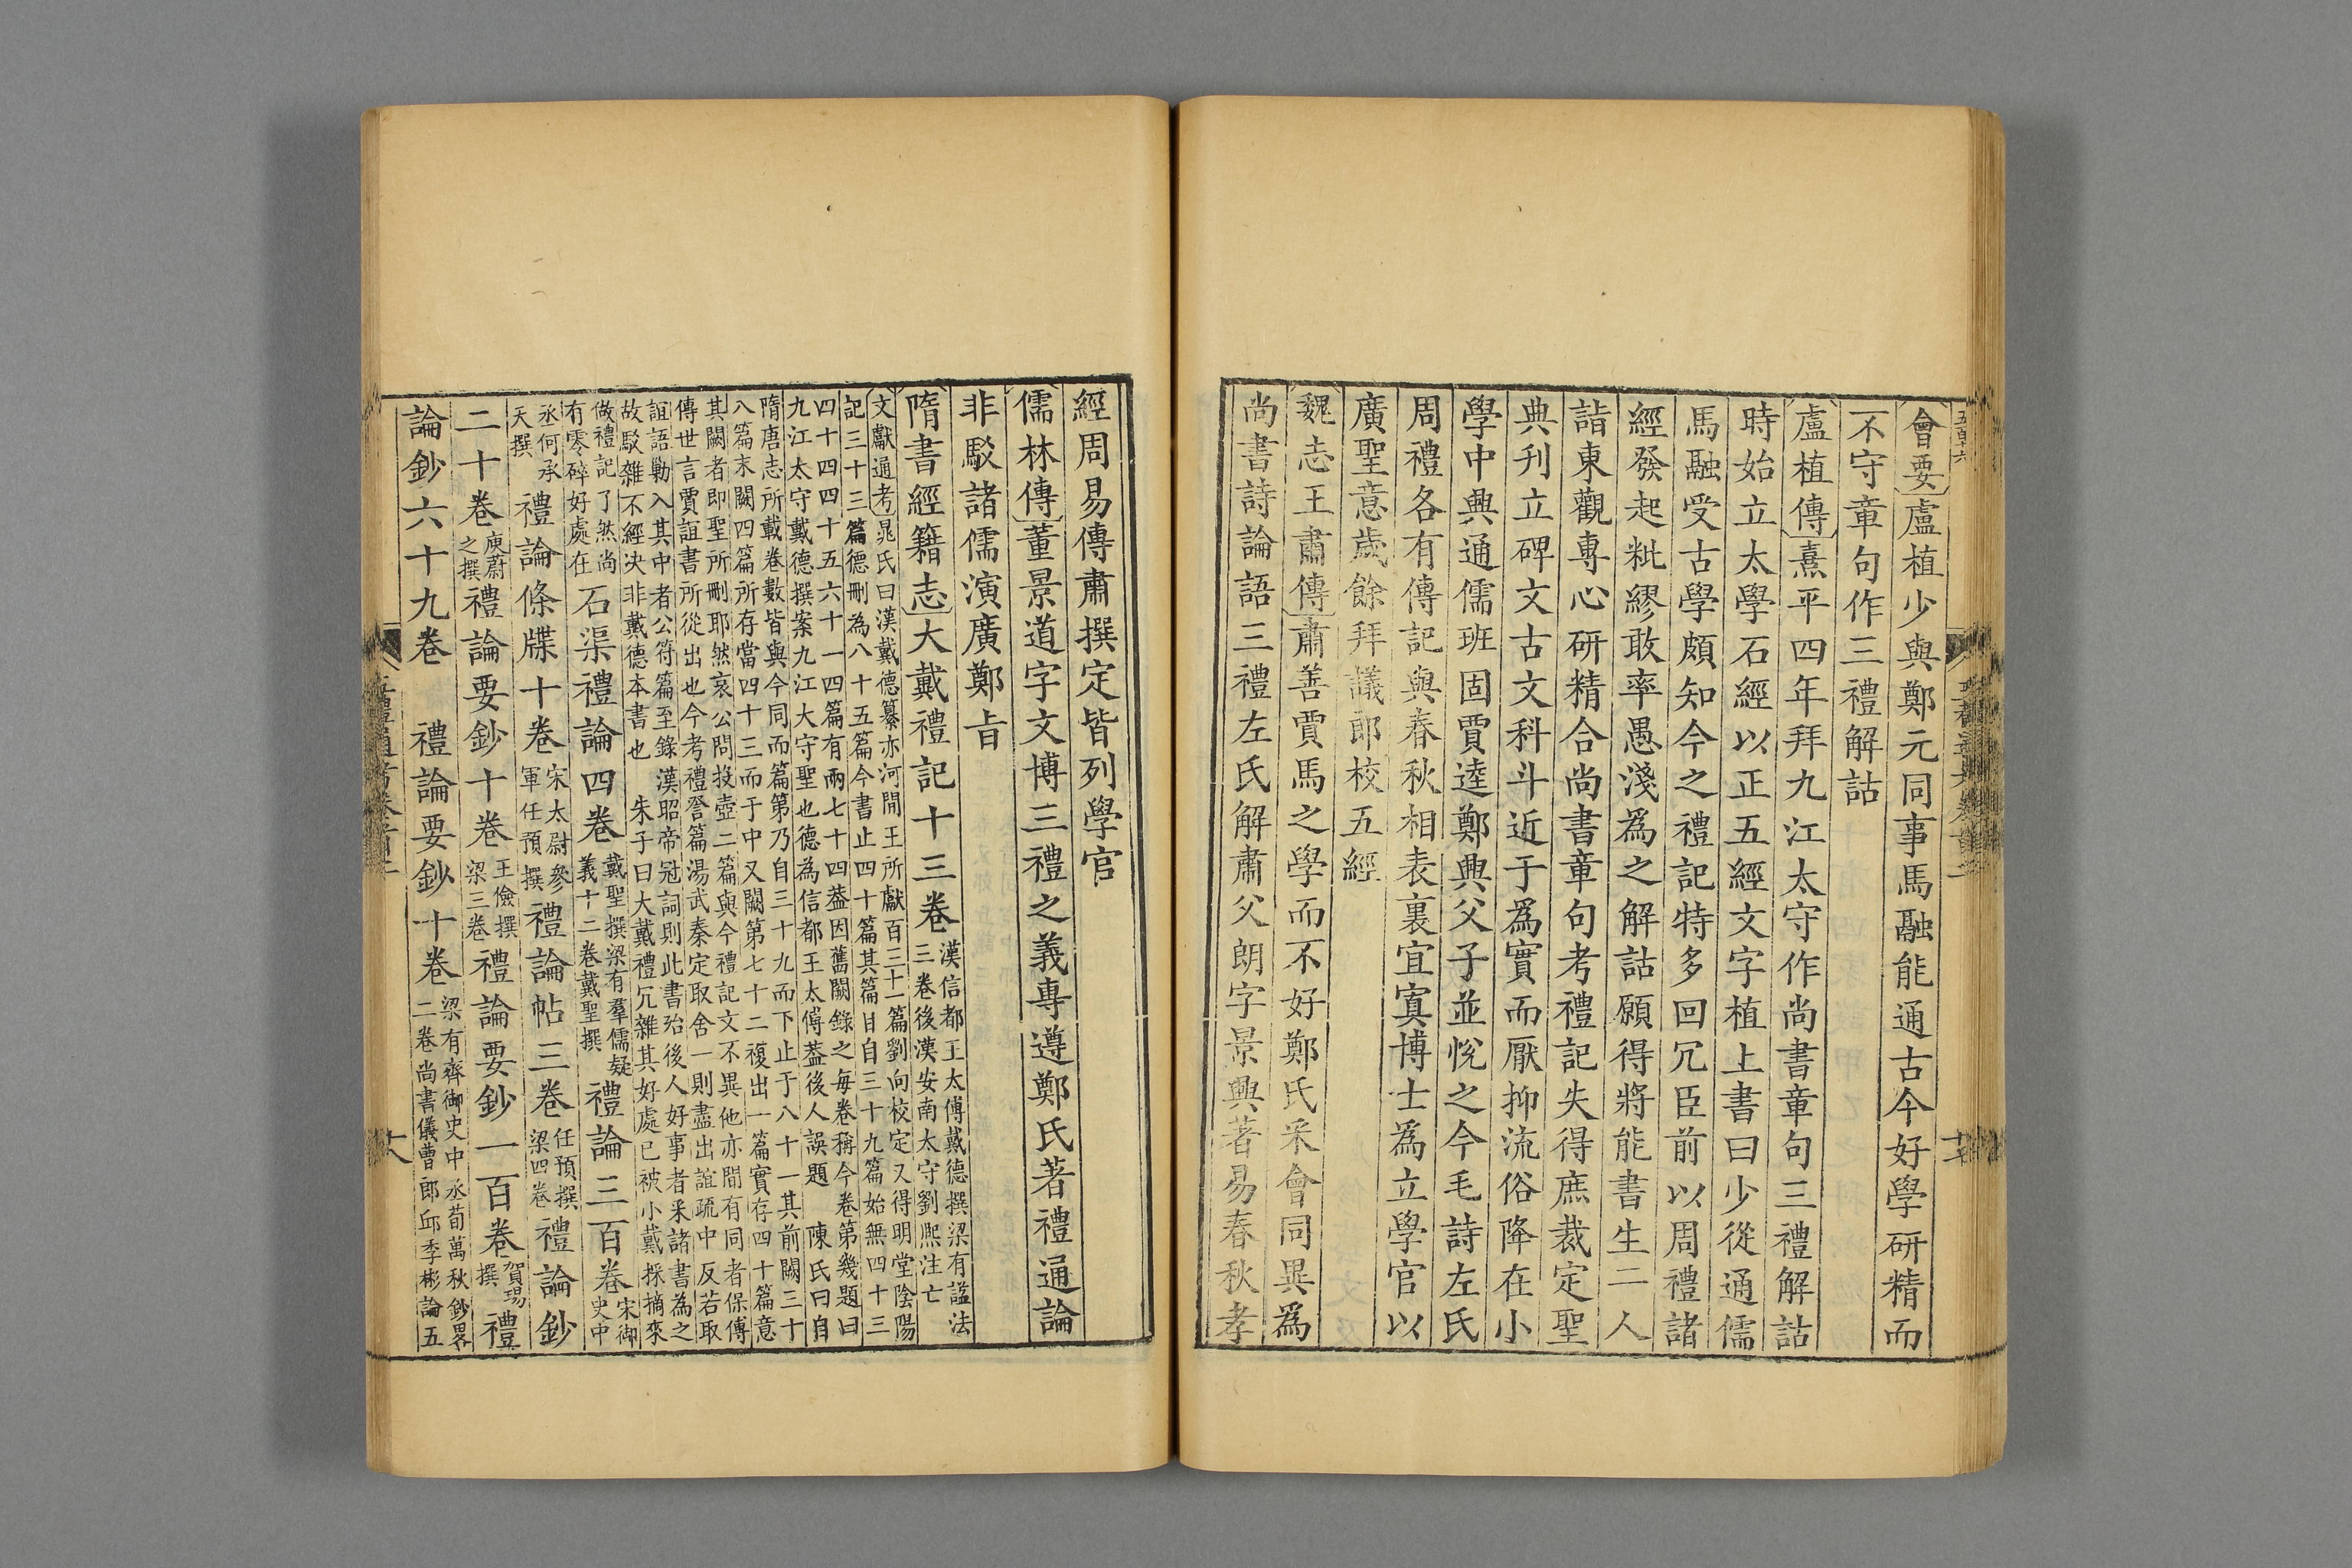 會要盧植少與鄭元同事馬融能通古今好學研精而
不守章句作三禮解詁
盧植傳熹平四年拜九江太守作尚書章句三禮解詁
時始立太學石經以正五經文字植上書曰少從通儒
馬融受古學頗知今之禮記特多回冗臣前以周禮諸
經發起粃繆敢率愚淺爲之解詁願得將能書生二人
詣東觀專心研精合尚書章句考禮記失得庶裁定聖
典刊立碑文古文科斗近于爲實而厭抑流俗降在小
學中興通儒班固賈逵鄭興父子並悅之今毛詩左氏
周禮各有傳記與春秋相表裏宜寘博士爲立學官以
廣聖意歲餘拜議郎校五經
魏志王肅傳肅善賈馬之學而不好鄭氏采會同異爲
尚書詩論語三禮左氏解肅父朗字景興著易春秋孝
經周易傳肅撰定皆列學官
儒林傳董景道字文博三禮之義專遵鄭氏著禮通論
非駁諸儒演廣鄭旨
隋書經籍志大戴禮記十三卷漢信都王太傅戴德撰梁有諡法三卷後漢安南太守劉熙注亡
文獻通考晁氏曰漢戴德纂亦河間王所獻百三十一篇劉向校定又得明堂陰陽
記三十三篇德刪為八十五篇今書止四十篇其篇目自三十九篇始無四十三
四十四四十五六十一四篇有兩七十四蓋因舊闕錄之每卷稱今卷第幾題曰
九江太守戴德撰案九江大守聖也德為信都王太傅蓋後人誤題 陳氏曰自
隋唐志所載卷數皆與今同而篇第乃自三十九而下止于八十一其前闕三十
八篇末闕四篇所存當四十三而于中又闕第七十二複出一篇實存四十篇意
其闕者即聖所刪耶然哀公問投壺二篇與今禮記文不異他亦間有同者保傅
傳世言賈誼書所從出也今考禮詧篇湯武秦定取舍一則盡出誼疏中反若取
誼語勦入其中者公符篇至錄漢昭帝冠詞則此書殆後人好事者采諸書為之
故駁雜不經决非戴德本書也 朱子曰大戴禮冗雜其好處已被小戴採摘來
做禮記了然尚有零碎好處在石渠禮論四卷戴聖撰梁有羣儒疑義十二卷戴聖撰禮論三百卷宋御史中
丞何承天撰禮論條牒十卷宋太尉參軍任預撰禮論帖三卷任預撰梁四卷禮論鈔
二十卷庾蔚之撰禮論要鈔十卷王儉撰梁三卷禮論要鈔一百卷賀瑒撰禮
論鈔六十九卷 禮論要鈔十卷梁有齊御史中丞荀萬秋鈔畧二卷尚書儀曹郎邱季彬論五